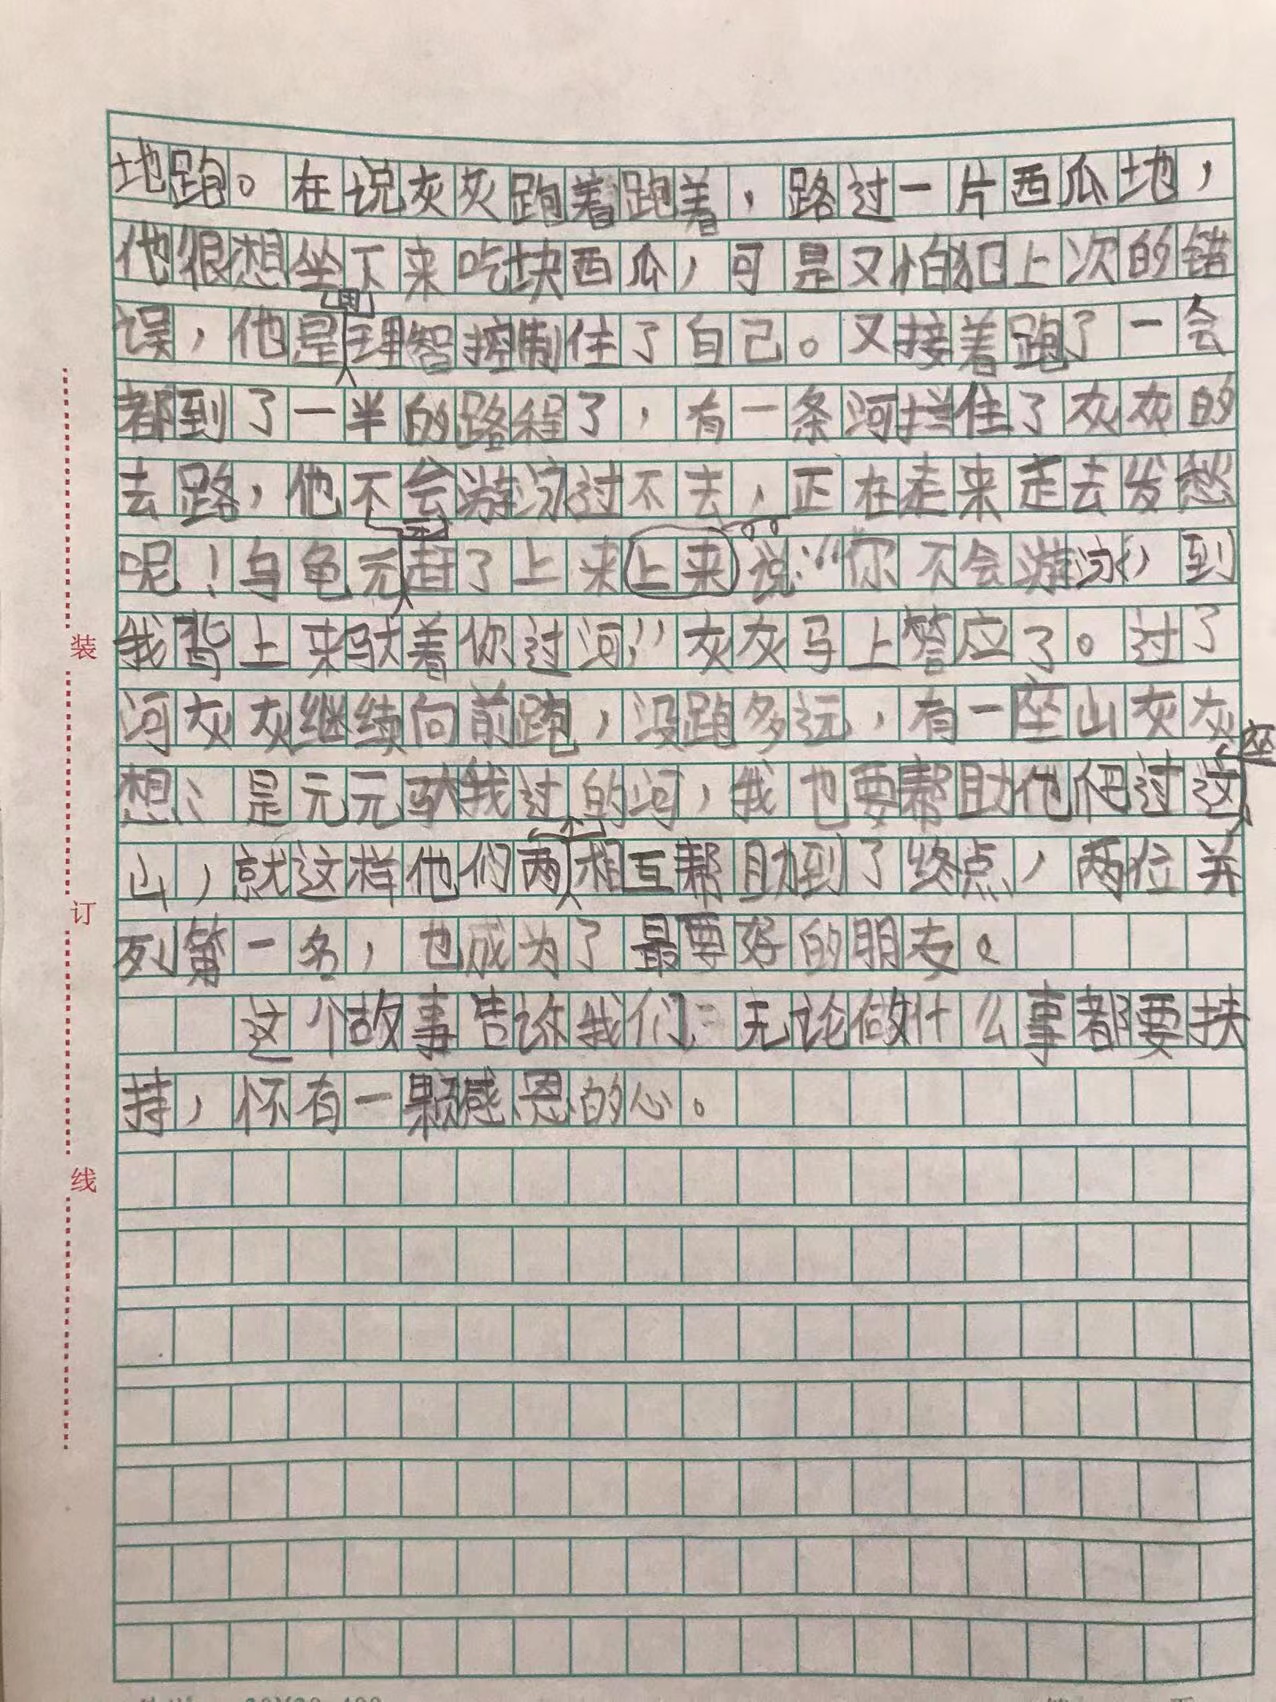 地跑。在说灰灰跑着跑着，路过一片西瓜地，
他很想坐下来吃块西瓜，可是又怕犯上次的错
误，他是用理智控制住了自己。又接着跑了一会
都到了一半的路程了，有一条河拦住了灰灰的
去路，他不会游泳过不去，正在走来走去发愁
呢！乌龟元元赶了上来上来说：“你不会游泳，到
我背上来驮着你过河”灰灰马上答应了。过了
河灰灰继续向前跑，没跑多远，有一座山灰灰
想：是元元驮我过的河，我也要帮助他爬过这座
山，就这样他们两个相互帮助到了终点，两位并
列第一名，也成为了最要好的朋友。
这个故事告诉我们：无论做什么事都要扶
持，怀有一颗感恩的心。
装
订
线